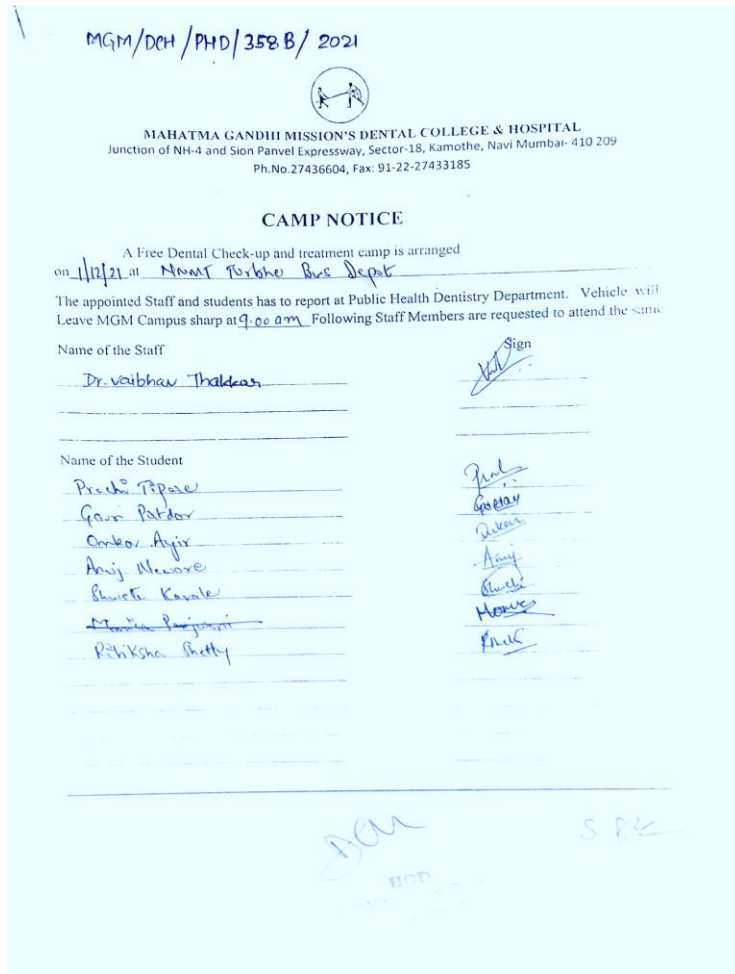 MGM/DCH/PHD/358B/2021
MAHATMA GANDHI MISSION'S DENTAL COLLEGE & HOSPITAL
Junction of NH-4 and Sion Panvel Expressway, Sector-18, Kamothe, Navi Mumbai- 410 209
Ph.No.27436604, Fax: 91-22-27433185
CAMP NOTICE
A Free Dental Check-up and treatment camp is arranged
on 1/12/21 at NMMT Turbhe Bus Depot
The appointed Staff and students has to report at Public Health Dentistry Department. Vehicle will
Leave MGM Campus sharp at 9.00 am Following Staff Members are requested to attend the same
Name of the Staff Sign
Dr. Vaibhav Thakkar
Name of the Student
Prachi Tipare
Gauri Patdar
Omkar Ayir
Anuj Neware
Shweta Kavale
Ritiksha Shetty
HOD